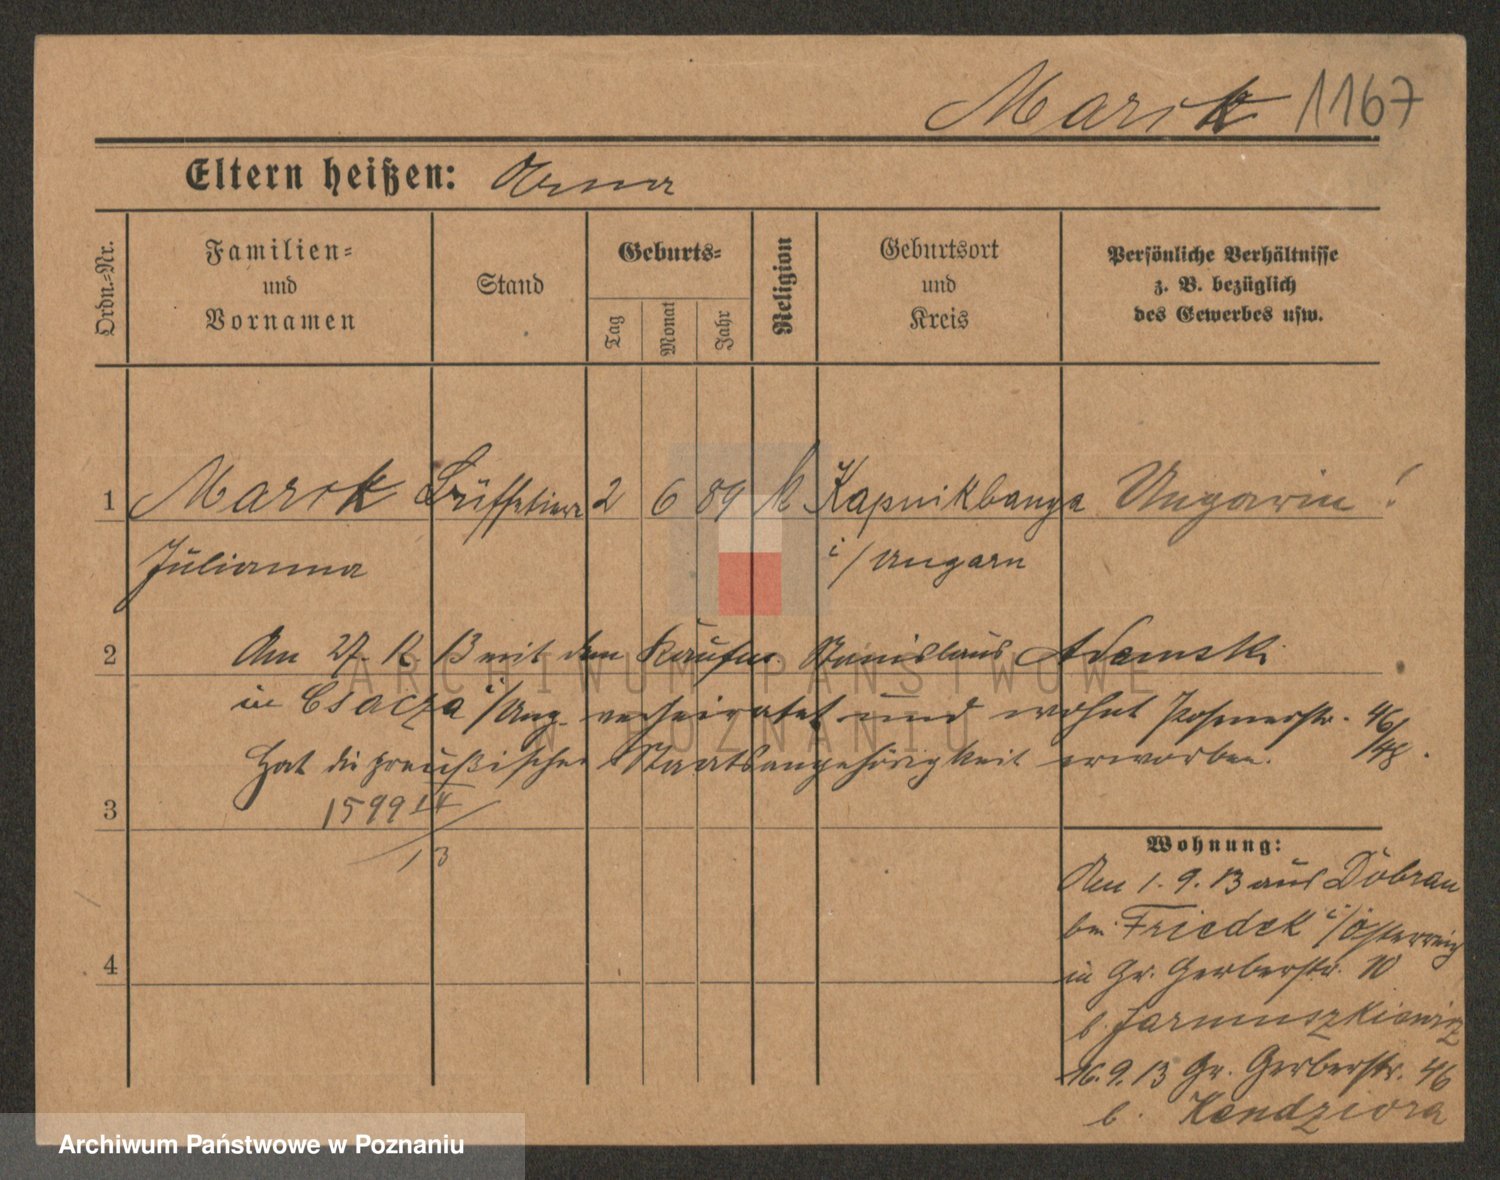 Marik 1167
Eltern heißen: Anna
Ordn.-Nr.
Familien-
und
Vornamen
Stand
Geburts-
Tag
Monat
Jahr
Religion
Geburtsort
und
Kreis
Persönliche Verhältnisse
z. B. bezüglich
des Gewerbes usw.
1 Marik Büffetiere 2 6 89 k Kapnikbanya Ungarin!
Julianna i/Ungarn
2 Am 27. 12. 13 mit dem Kaufm. Stanislaus Adamski
in Csacza i/Ung. verheiratet und wohnt Posenerstr. 46/48.
Hat die preußische Staatsangehörigkeit erworben.
3 1599 14/13
Wohnung:
Am 1. 9. 13 aus Dobrau
bei Friedek i/Österreich
in Gr. Gerberstr. 10
4
b. Jarmuszkiewicz
16. 9. 13 Gr. Gerberstr. 46
b. Kendziora
ARCHIWUM PAŃSTWOWE
W POZNANIU
Archiwum Państwowe w Poznaniu